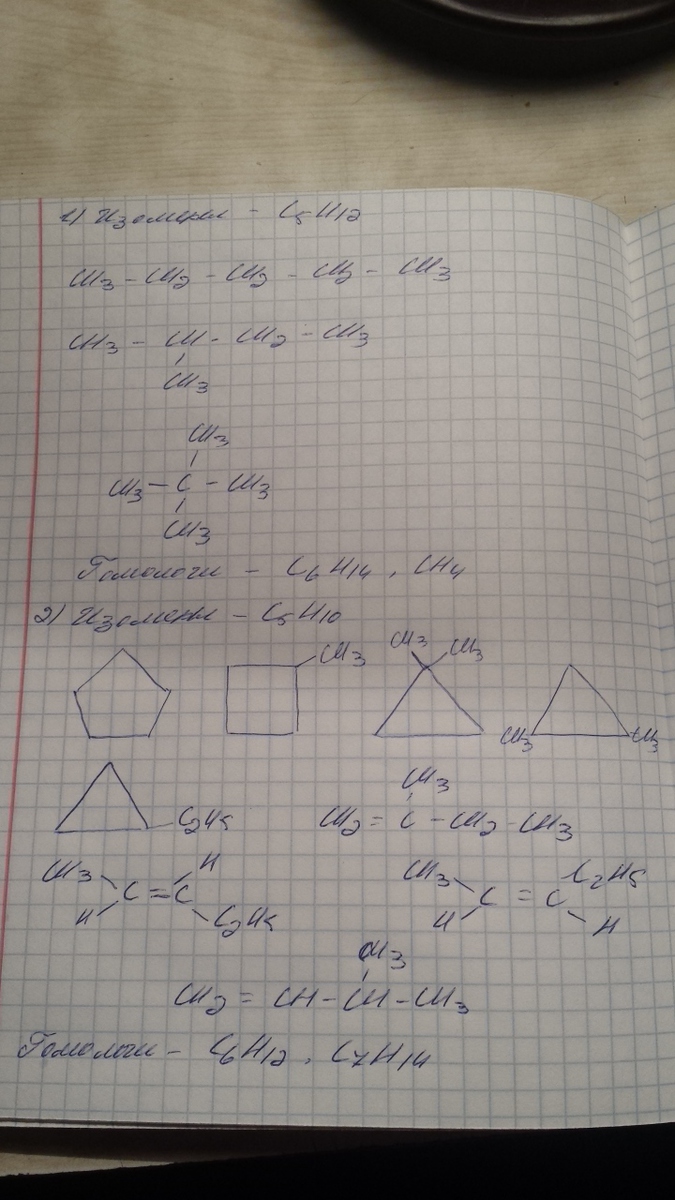 1) Изомеры - C5H12
CH3 - CH2 - CH2 - CH2 - CH3
CH3 - CH - CH2 - CH3
CH3
CH3
CH3 - C - CH3
CH3
Гомологи - C6H14, CH4
2) Изомеры - C5H10
CH3 CH3 CH3
CH3 CH3
CH3
C2H5 CH2 = C - CH2 - CH3
CH3 H CH3 C2H5
C = C C = C
H C2H5 H H
CH3
CH2 = CH - CH - CH3
Гомологи - C6H12, C7H14